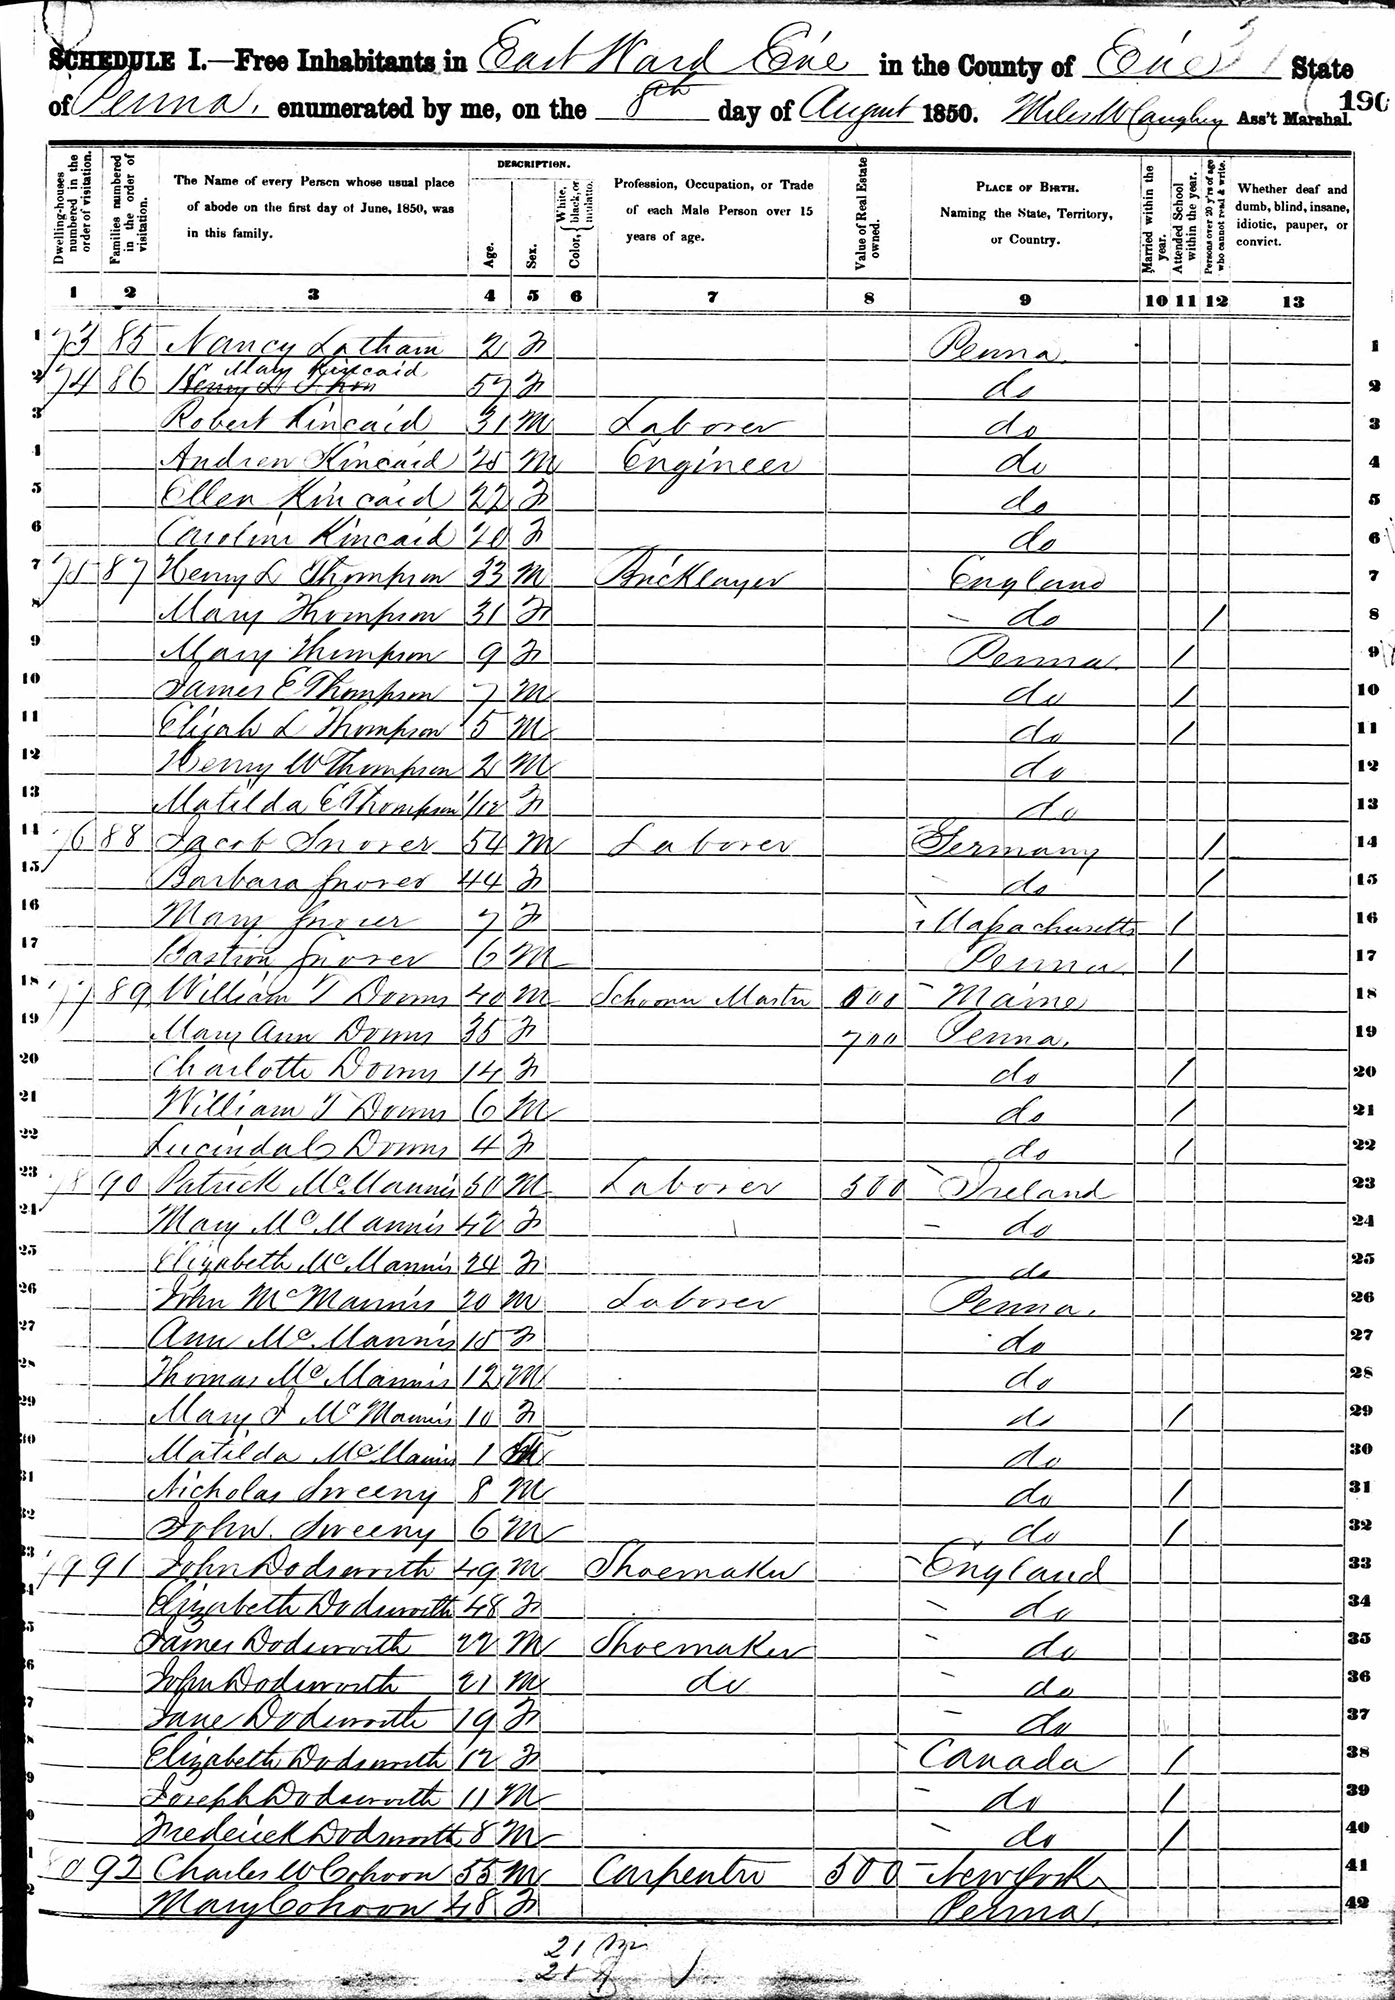 SCHEDULE I.—Free Inhabitants in East Ward Erie in the County of Erie State
of Penna. enumerated by me, on the 8th day of August 1850. Miles W Caughey Ass't Marshal. 190
Dwelling-houses numbered in the order of visitation.
Families numbered in the order of visitation.
The Name of every Person whose usual place of abode on the first day of June, 1850, was in this family.
DESCRIPTION.
Age.
Sex.
Color, White, black, or mulatto.
Profession, Occupation, or Trade of each Male Person over 15 years of age.
Value of Real Estate owned.
PLACE OF BIRTH. Naming the State, Territory, or Country.
Married within the year.
Attended School within the year.
Persons over 20 y'rs of age who cannot read & write.
Whether deaf and dumb, blind, insane, idiotic, pauper, or convict.
1 2 3 4 5 6 7 8 9 10 11 12 13
1 73 85 Nancy Latham 2 F Penna. 1
2 74 86 Mary Kincaid 57 F do 2
3 Robert Kincaid 31 M Laborer do 3
4 Andrew Kincaid 25 M Engineer do 4
5 Ellen Kincaid 22 F do 5
6 Caroline Kincaid 20 F do 6
7 75 87 Henry L Thompson 33 M Bricklayer England 7
8 Mary Thompson 31 F do / 8
9 Mary Thompson 9 F Penna. / 9
10 James E Thompson 7 M do / 10
11 Elijah L Thompson 5 M do / 11
12 Henry W Thompson 2 M do 12
13 Matilda E Thompson 1/12 F do 13
14 76 88 Jacob Snover 54 M Laborer Germany / 14
15 Barbara Snover 44 F do / 15
16 Mary Snover 7 F Massachusetts / 16
17 Bastion Snover 6 M Penna. / 17
18 77 89 William T Downs 40 M Schooner Master 000 Maine 18
19 Mary Ann Downs 35 F 700 Penna. 19
20 Charlotte Downs 14 F do / 20
21 William T Downs 6 M do / 21
22 Lucinda C Downs 4 F do / 22
23 78 90 Patrick McMannis 50 M Laborer 500 Ireland 23
24 Mary McMannis 42 F do 24
25 Elizabeth McMannis 24 F do 25
26 John McMannis 20 M Laborer Penna. 26
27 Ann McMannis 15 F do 27
28 Thomas McMannis 12 M do 28
29 Mary J McMannis 10 F do / 29
30 Matilda McMannis 1 M do 30
31 Nicholas Sweeny 8 M do / 31
32 John Sweeny 6 M do / 32
33 79 91 John Dodsworth 49 M Shoemaker England 33
34 Elizabeth Dodsworth 48 F do 34
35 James Dodsworth 22 M Shoemaker do 35
36 John Dodsworth 21 M do do 36
37 Jane Dodsworth 19 F do 37
8 Elizabeth Dodsworth 12 F Canada / 38
9 Joseph Dodsworth 11 M do / 39
0 Frederick Dodsworth 8 M do / 40
1 80 92 Charles W Cohoon 55 M Carpenter 500 New York 41
2 Mary Cohoon 48 F Penna. 42
21 m
21 f